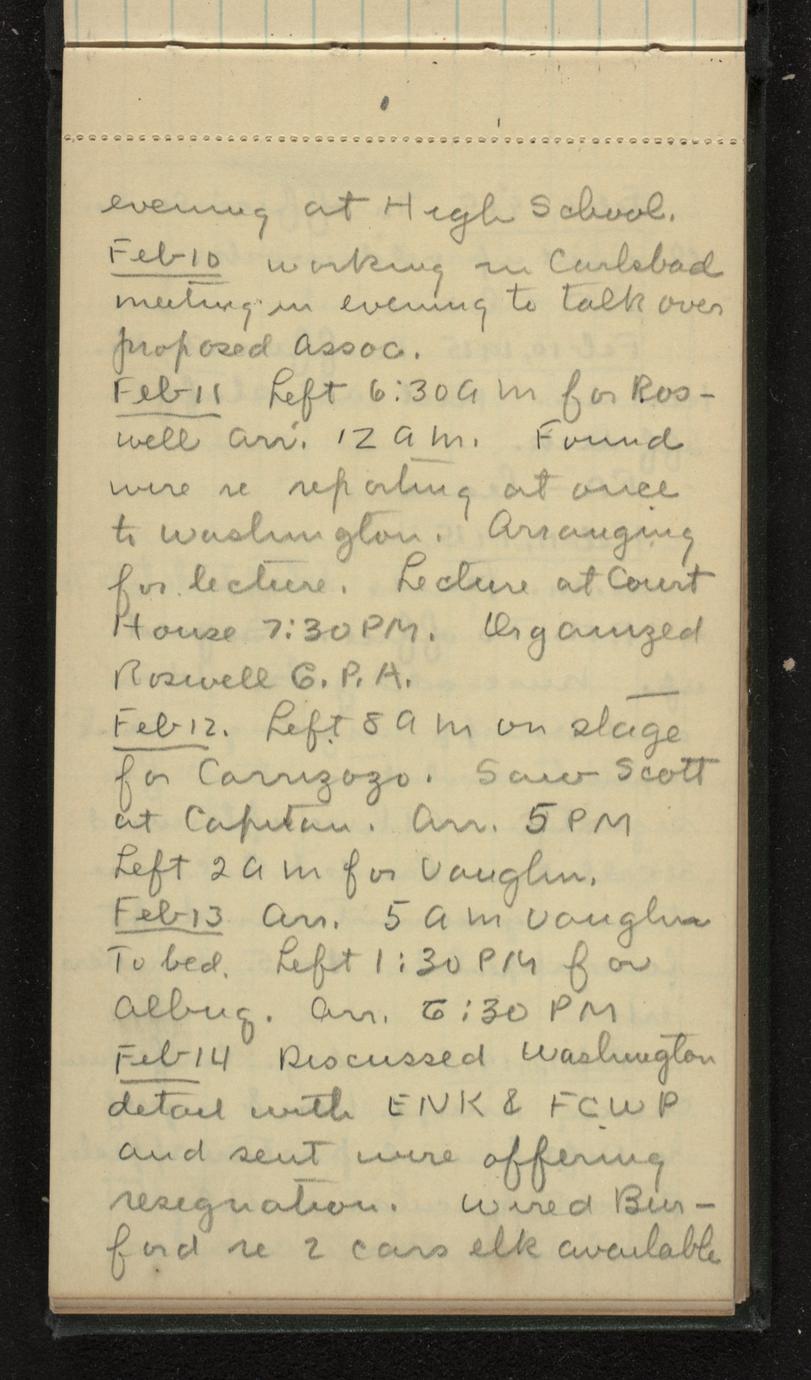 evening at High School.
Feb 10 working in Carlsbad
meeting in evening to talk over
proposed Assoc.
Feb 11 Left 6:30 A M for Ros-
well Arr. 12 A M. Found
wire re reporting at once
to Washington. Arranging
for lecture. Lecture at Court
House 7:30 PM. Organized
Roswell G. P. A.
Feb 12. Left 8 A M on stage
for Carrizozo. Saw Scott
at Capitan. Arr. 5 PM
Left 2 A M for Vaughn.
Feb 13 Arr. 5 A M Vaughn
To bed. Left 1:30 PM for
Albuq. Arr. 6:30 PM
Feb 14 Discussed Washington
detail with ENK & FCWP
and sent wire offering
resignation. Wired Bur-
ford re 2 cars elk available